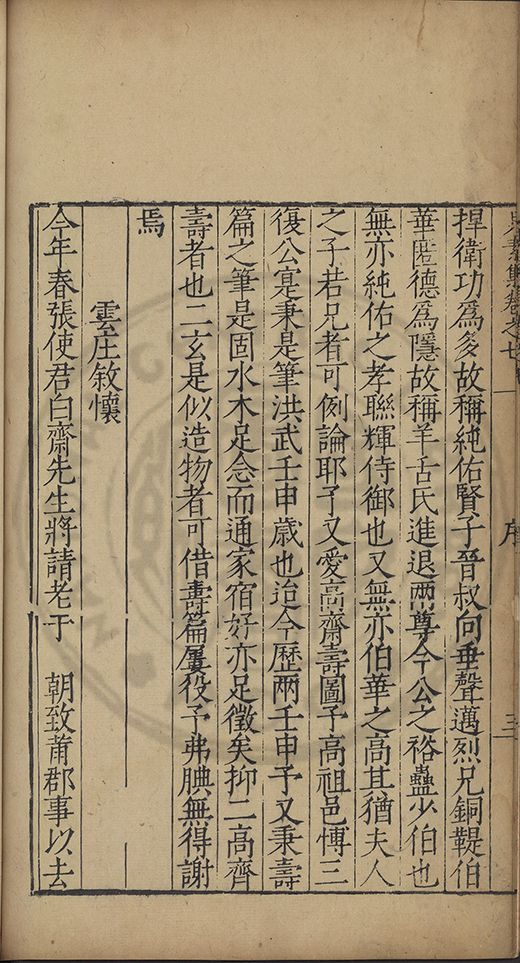 捍衛功為多故稱純佑賢子晉叔向垂聲邁烈兄銅鞮伯
華匿德為隱故稱羊舌氏進退兩尊今公之裕蠱少伯也
無亦純佑之孝聯輝侍御也又無亦伯華之高其猶夫人
之子若兄者可例論耶予又愛高齋壽圖予高祖邑博三
復公寔秉是筆洪武壬申歲也迨今歷兩壬申予又秉壽
篇之筆是固水木足念而通家宿好亦足徵矣抑二高齊
壽者也二玄是似造物者可借壽篇屢役予弗腆無得謝
焉
雲庄敘懷
今年春張使君白齋先生將請老于 朝致莆郡事以去
卷之七
序
三